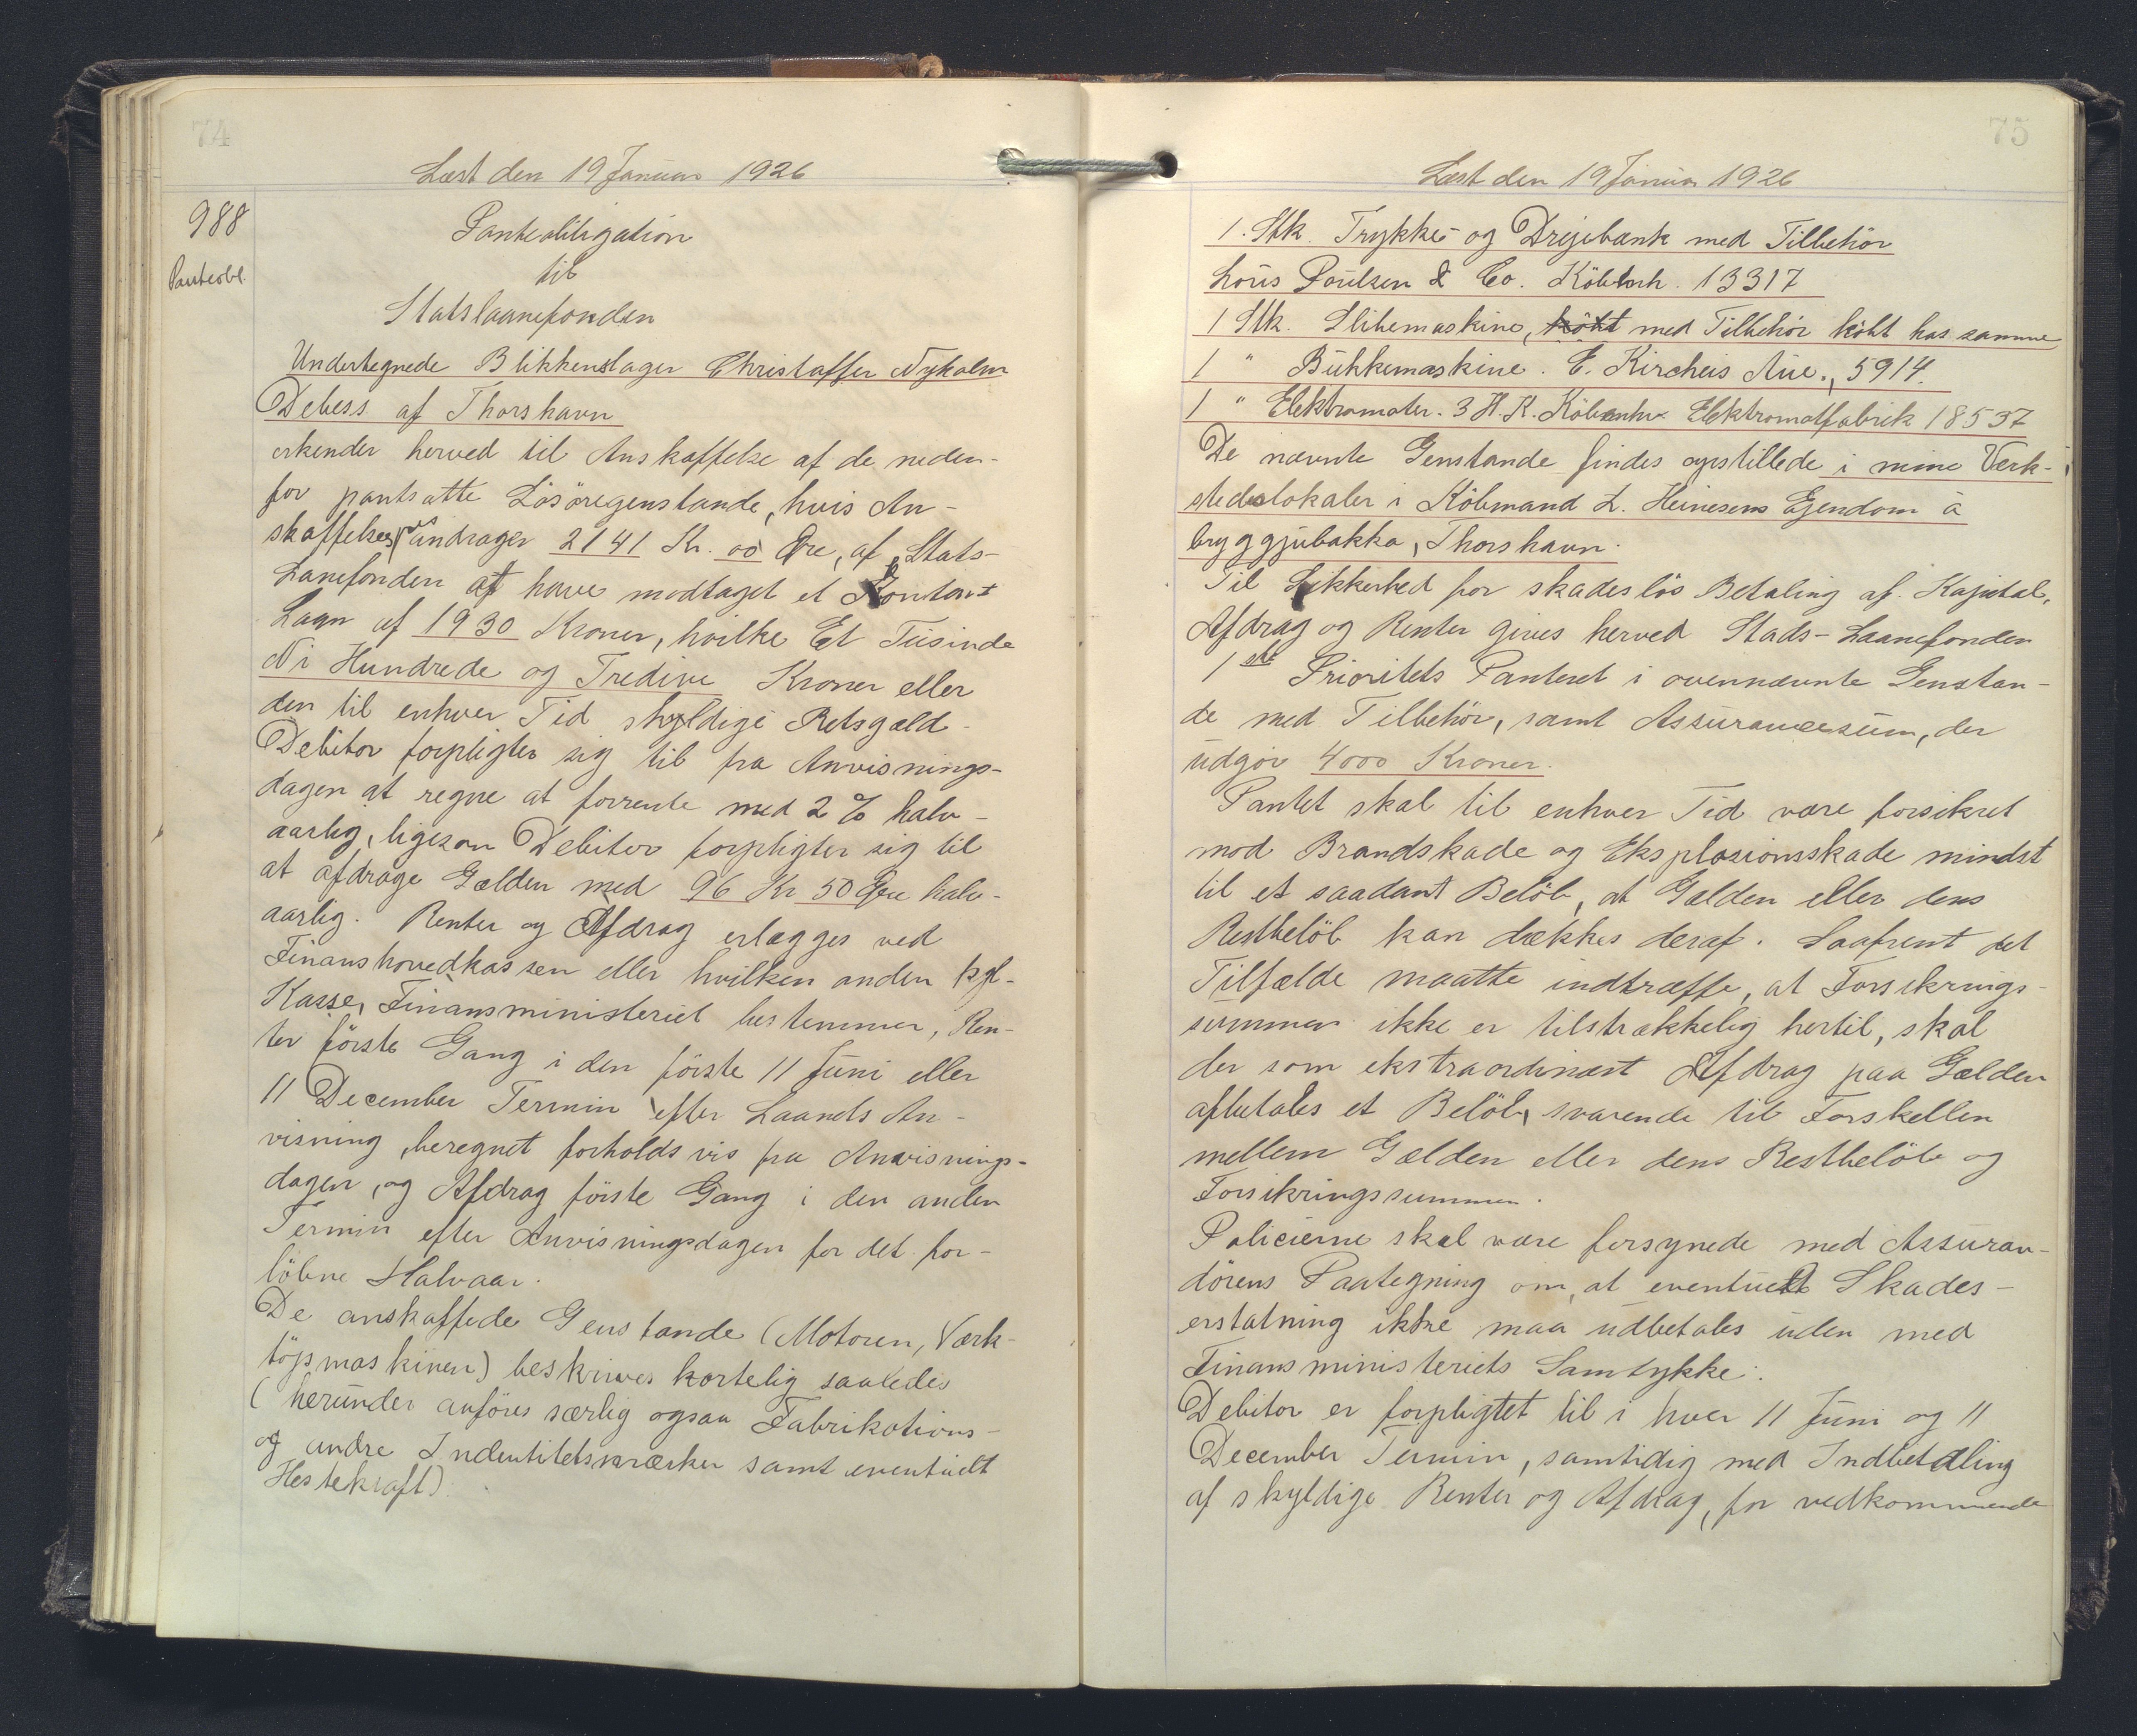 74
Læst den 19 Januar 1926
988
Panteobl.
Panteobligation
til
Statslaanefonden
Undertegnede Blikkenslager Christoffer Nyholm
Debess af Thorshavn
erkender herved til Anskaffelse af de neden-
for pantsatte Lösöregenstande, hvis An-
skaffelsespris andrager 2141 Kr. 00 Öre, af Stats-
Lanefonden at have modtaget et Kontant
Laan af 1930 Kroner, hvilke Et Tusinde
Ni Hundrede og Tredive Kroner eller
den til enhver Tid skyldige Restgæld
Debitor forpligter sig til fra Anvisnings-
dagen at regne at forrente med 2 % halv-
aarlig, ligesom Debitor forpligter sig til
at afdrage Gælden med 96 Kr 50 Öre halv-
aarlig. Renter og Afdrag erlægges ved
Finanshovedkassen eller hvilken anden kgl.
Kasse, Finansministeriet bestemmer, Ren-
ter förste Gang i den förste 11 Juni eller
11 December Termin efter Laanets An-
visning, beregnet forholdsvis fra Anvisnings-
dagen, og Afdrag förste Gang i den anden
Termin efter Anvisningsdagen for det for-
löbne Halvaar.
De anskaffede Genstande (Motoren, Værk-
töjsmaskinen) beskrives kortelig saaledes
(herunder anföres særlig ogsaa Fabrikations-
og andre Indentitetsmærker samt eventuelt
Hestekraft).
75
Læst den 19 Januar 1926
1. Stk. Trykke- og Drejebænk med Tilbehör
Louis Poulsen & Co. Köbenh. 13317
1 Stk. Slibemaskine, köbt med Tilbehör köbt hos samme
1 " Bukkemaskine. E. Kircheis Aue., 5914.
1 " Elektromotor. 3 H.K. Köbenhv. Elektromotfabrik 18537
De nævnte Genstande findes opstillede i mine Værk-
stedslokaler i Köbmand L. Heinesens Ejendom á
bryggjubakka, Thorshavn.
Til Sikkerhed for skadeslös Betaling af Kapital,
Afdrag og Renter gives herved Stads-Laanefonden
1ste Prioritets Panteret i ovennævnte Genstan-
de med Tilbehör, samt Assurancesum, der
udgör 4000 Kroner.
Pantet skal til enhver Tid være forsikret
mod Brandskade og Eksplosionsskade mindst
til et saadant Belöb, at Gælden eller dens
Restbelöb kan dækkes deraf. Saafremt det
Tilfælde maatte indtræffe, at Forsikrings-
summen ikke er tilstrækkelig hertil, skal
der som ekstraordinært Afdrag paa Gælden
afbetales et Belöb, svarende til Forskellen
mellem Gælden eller dens Restbelöb og
Forsikringssummen.
Policierne skal være forsynede med Assuran-
dörens Paategning om, at eventuelt Skades-
erstatning ikke maa udbetales uden med
Finansministeriets Samtykke.
Debitor er forpligtet til i hver 11 Juni og 11
December Termin, samtidig med Indbetaling
af skyldige Renter og Afdrag, for vedkommende